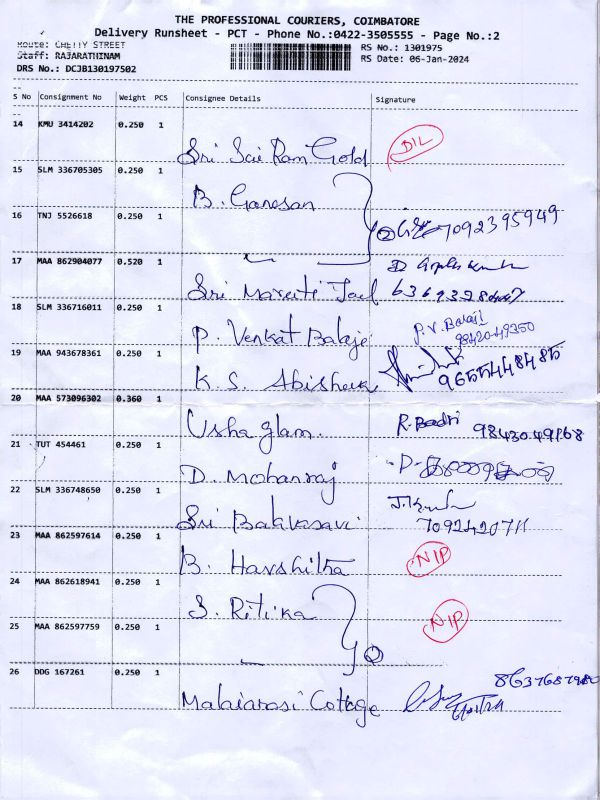 THE PROFESSIONAL COURIERS, COIMBATORE
Delivery Runsheet - PCT - Phone No.:0422-3505555 - Page No.:2
Route: CHETTY STREET RS No.: 1301975
Staff: RAJARATHINAM RS Date: 06-Jan-2024
DRS No.: DCJB130197502
S No Consignment No Weight PCS Consignee Details Signature
14 KMU 3414202 0.250 1 Sri Sai Ram Gold DIL
15 SLM 336705305 0.250 1 B. Ganesan
16 TNJ 5526618 0.250 1 2 7092395949
17 MAA 862904077 0.520 1 Sri Maruti
18 SLM 336716011 0.250 1 P. Venkat Balaje P.V. Balaji 9842049350
19 MAA 943678361 0.250 1 K.S. Abishek 9655448485
20 MAA 573096302 0.360 1 Usha glam. R. Badri 9843049168
21 TUT 454461 0.250 1 D. Mohanraj
22 SLM 336748650 0.250 1 Sri
23 MAA 862597614 0.250 1 B. Harshitha NIP
24 MAA 862618941 0.250 1 S. Ritika NIP
25 MAA 862597759 0.250 1
26 DDG 167261 0.250 1 Malaiarasi Cottage